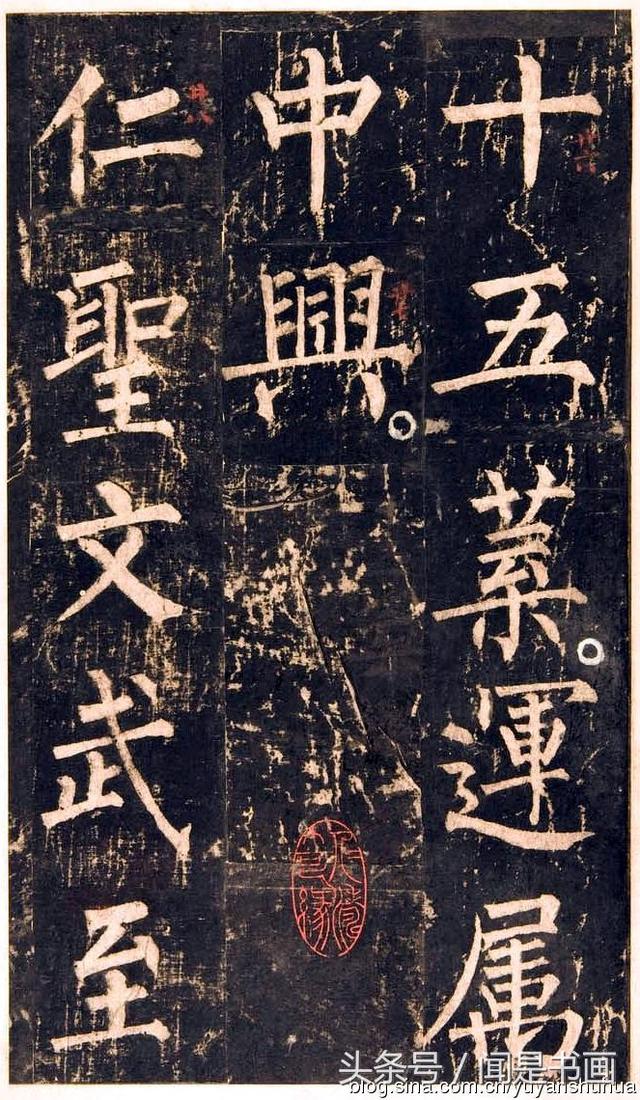 十五葉運属
中興
仁聖文武至
头条号 / 闻是书画
blog.sina.com.cn/yuyanshuhua